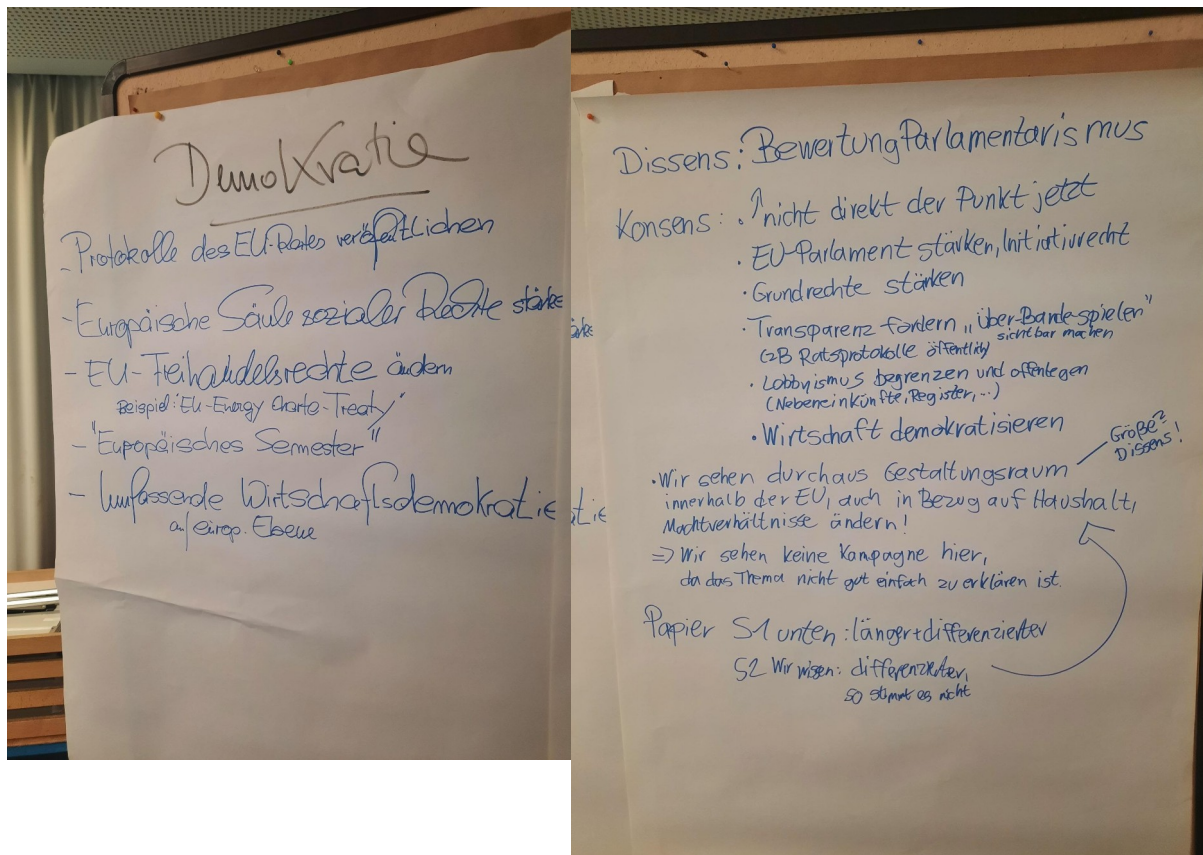 Demokratie
- Protokolle des EU-Rates veröffentlichen
- Europäische Säule sozialer Rechte stärke
- EU-Freihandelsrechte ändern
Beispiel: EU-Energy Charta-Treaty"
- "Europäisches Semester"
- Umfassende Wirtschaftsdemokratie
auf europ. Ebene
Dissens: Bewertung Parlamentarismus
Konsens: · ↑ nicht direkt der Punkt jetzt
· EU-Parlament stärken, Initiativrecht
· Grundrechte stärken
· Transparenz fordern „über-Bande-spielen"
sichtbar machen
(zB Ratsprotokolle öffentlich)
· Lobbyismus begrenzen und offenlegen
(Nebeneinkünfte, Register, ...)
· Wirtschaft demokratisieren
· Wir sehen durchaus Gestaltungsraum
Größe?
Dissens!
innerhalb der EU, auch in Bezug auf Haushalt,
Machtverhältnisse ändern!
=> Wir sehen keine Kampagne hier,
da das Thema nicht gut einfach zu erklären ist.
Papier S1 unten: länger + differenzierter
S2 Wir wissen: differenzierter,
so stimmt es nicht